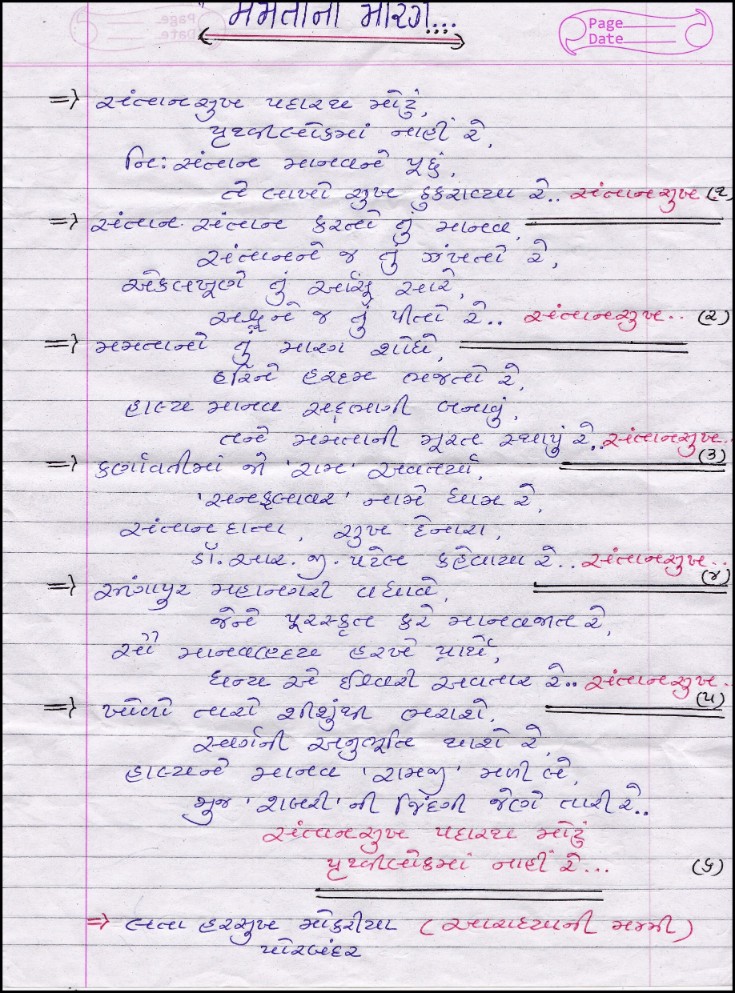 મમતાના મારગ...
Page
Date
=> સંતાનસુખ પદારથ મોટું,
પૃથ્વીલોકમાં નાહીં રે,
નિ:સંતાન માનવને પૂછું,
તે લાખો સુખ ઠુકરાવ્યા રે.. સંતાનસુખ (૧)
=> સંતાન સંતાન કરતો તું માનવ,
સંતાનને જ તું ઝંખતો રે,
એકલખૂણે તું આંસુ સારે,
અશ્રુને જ તું પીતો રે.. સંતાનસુખ.. (૨)
=> મમતાનો તું મારગ શોધે,
હરિને હરદમ ભજતો રે,
હાલ્ય માનવ સદ્દભાગી બનાવું,
તને મમતાની મૂરત સ્થાપું રે.. સંતાનસુખ..
(૩)
=> કર્ણાવતીમાં જો 'રામ' અવતર્યા,
'સનફ્લાવર' નામે ધામ રે,
સંતાન દાતા, સુખ દેનારા,
ડૉ. આર. જી. પટેલ કહેવાયા રે.. સંતાનસુખ..
(૪)
=> મહાનગરી વધાવે,
જેને પૂરસ્કૃત કરે માનવજાત રે,
સૌ માનવહૃદય હરખે પ્રાર્થે,
ધન્ય એ ઈશ્વરી અવતાર રે.. સંતાનસુખ..
(૫)
=> ખોળો તારો શીશુંથી ભરાશે,
સ્વર્ગની અનુભૂતિ થાશે રે,
હાલ્યને માનવ 'રામજી' મળી લે,
મુજ 'શબરી' ની જિંદગી જેણે તારી રે..
સંતાનસુખ પદારથ મોટું
પૃથ્વીલોકમાં નાહીં રે...
(૬)
=> લતા હરસુખ મોકરીયા (આરાધ્યાની મમ્મી)
પોરબંદર